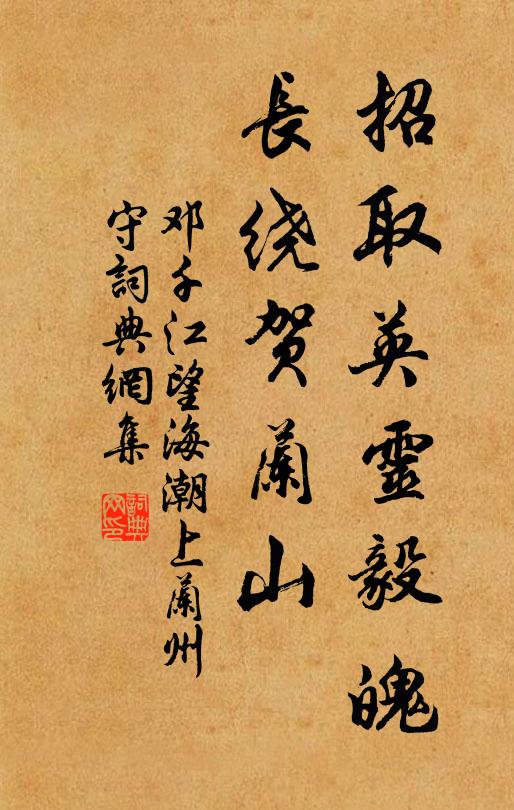 招取英靈毅魄
長绕贺蘭山
邓千江望海潮上蘭州
守詞典網集
詞典